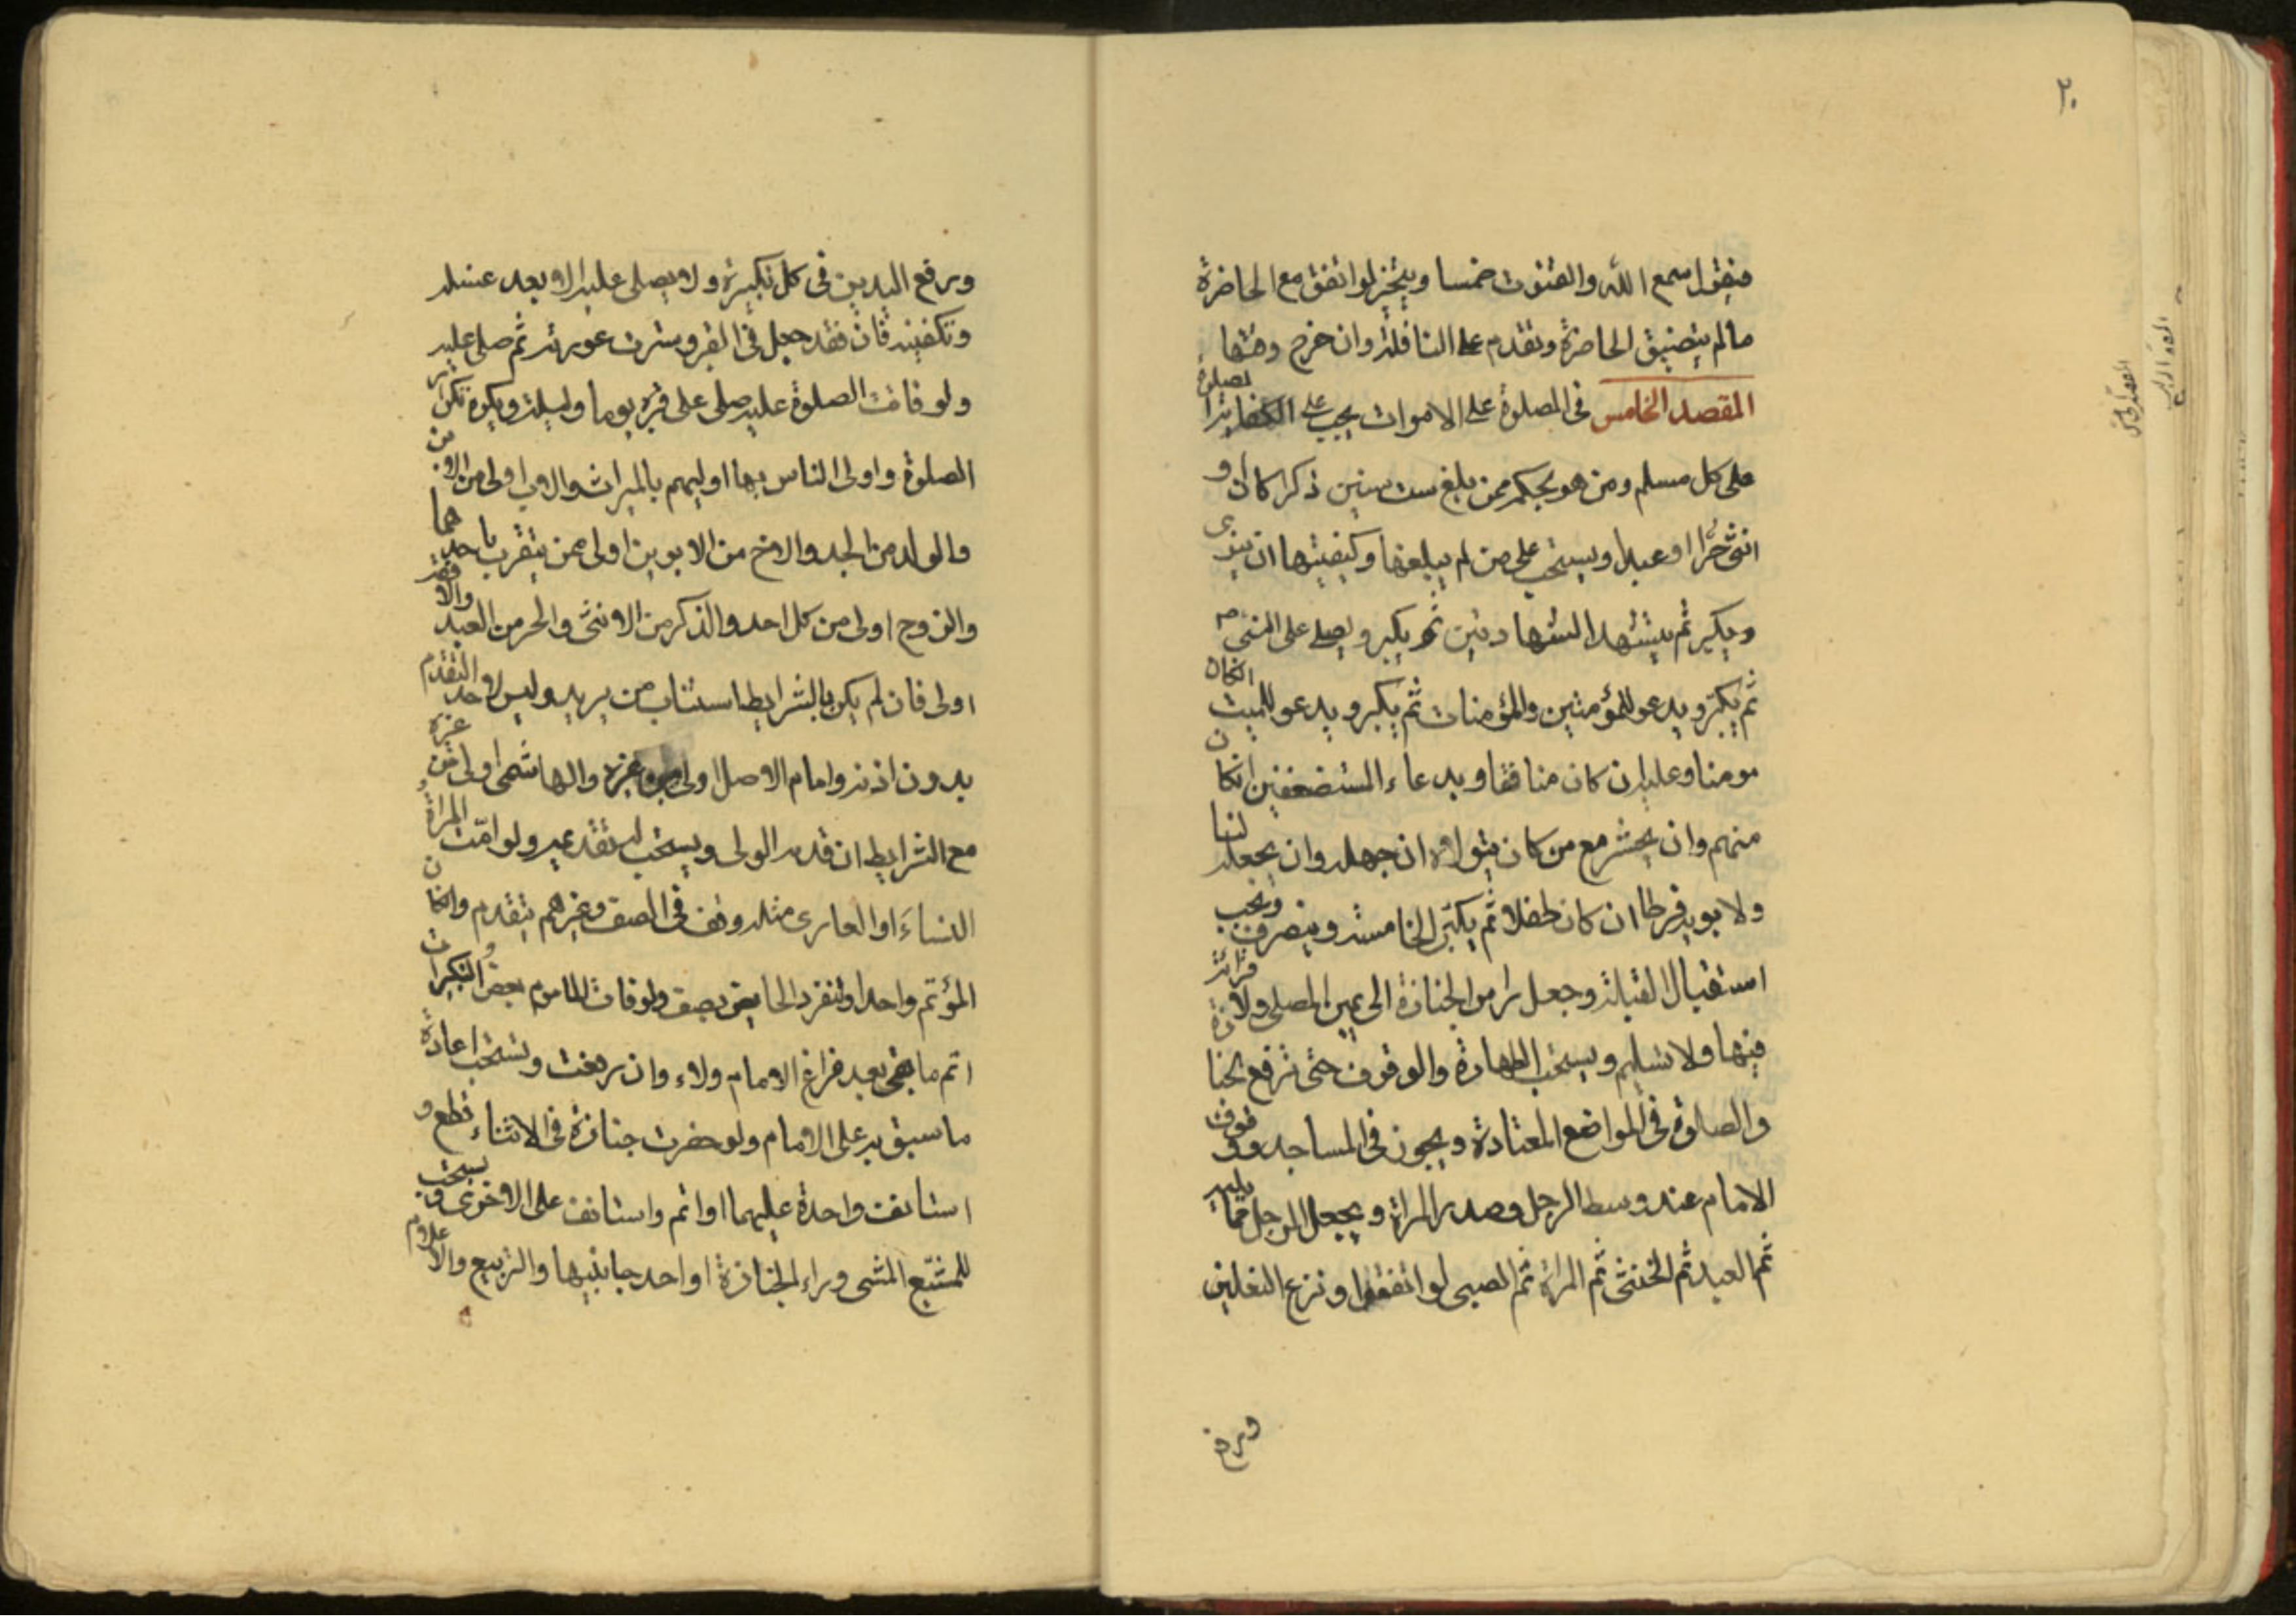 ٢٠
فيقول سمع الله والقنوت خمسا ويتخير لو اتفق مع الحاضرة
ما لم يتضيق الحاضرة وتقدم على النافلة وان خرج وقتها
المقصد الخامس فى الصلوة على الاموات يجب على الكفاية الصلوة
على كل مسلم ومن هو بحكمه ممن بلغ ست سنين ذكرا كان او
انثى حرا او عبدا ويستحب على من لم يبلغها وكيفيتها ان ينوى
ويكبر ثم يتشهد الشهادتين ثم يكبر ويصلى على النبى ص
ثم يكبر ويدعو للمؤمنين والمؤمنات ثم يكبر ويدعو للميت ان كان
مومنا وعليه ان كان منافقا وبدعاء المستضعفين ان كان
منهم وان يحشر مع من كان يتولاه ان جهله وان يجعله لنا
ولابويه فرطا ان كان طفلا ثم يكبر الخامسة وينصرف ويجب
استقبال القبلة وجعل راس الجنازة الى يمين المصلى ولا قرائة
فيها ولا تسليم ويستحب الطهارة والوقوف حتى ترفع الجنازة
والصلوة فى المواضع المعتادة ويجوز فى المساجد ووقوف
الامام عند وسط الرجل وصدر المراة ويجعل الرجل مما يليه
ثم العبد ثم الخنثى ثم المراة ثم الصبى لو اتفقوا ونزع النعلين
ورفع
ورفع اليدين فى كل تكبيرة ولا يصلى عليه الا بعد غسله
وتكفينه فان فقد جعل فى القبر وسترت عورته ثم صلى عليه
ولو فاتت الصلوة عليه صلى على قبره يوما وليلة ويكره تكرار
الصلوة واولى الناس بها اوليهم بالميراث والاب اولى من الابن
والولد من الجد والاخ من الابوين اولى ممن يتقرب باحدهما
والزوج اولى من كل احد والذكر من الانثى والحر من العبد والافقه
اولى فان لم يكن بالشرايط استناب من يريد وليس لاحد التقدم
بدون اذنه وامام الاصل اولى من غيره والهاشمى اولى من غيره
مع الشرايط ان قدمه الولى ويستحب له تقديمه ولو امت المراة
النساء او العارى مثله وقف فى الصف وغيرهم يتقدم وان كان
المؤتم واحدا وتنفرد الحايض بصف ولو فات الماموم بعض التكبيرات
اتم ما بقى بعد فراغ الامام ولاء وان رفعت ويستحب اعادة
ما سبق به على الامام ولو حضرت جنازة فى الاثناء قطع و
استانف واحدة عليهما او اتم واستانف على الاخرى ويستحب
للمشيع المشى وراء الجنازة او احد جانبيها والتربيع والاعلام